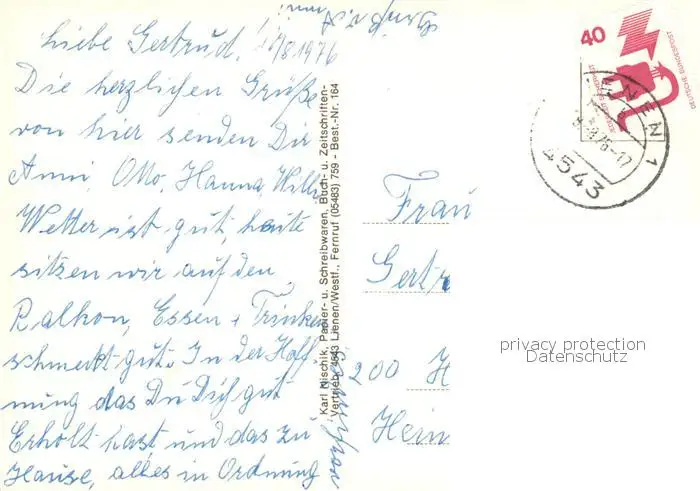 Liebe Gertrud! 8.1976
Die herzlichen Grüße
von hier senden Dir
Anni, Otto, Hanna, Willi
Wetter ist gut, heute
sitzen wir auf den
Balkon, Essen + Trinken
schmeckt gut. In der Hoff-
nung das Du Dich gut
Erholt hast, und das zu
Hause, alles in Ordnung
Karl Nischik, Papier- u. Schreibwaren, Buch- u. Zeitschriften-
Vertrieb, 4543 Lienen/Westf., Fernruf (05483) 759 - Best.-Nr. 164
40
DEUTSCHE BUNDESPOST
ENEN 1
.76-17
4543
Frau
Gertr
200 H
Hein
privacy protection
Datenschutz